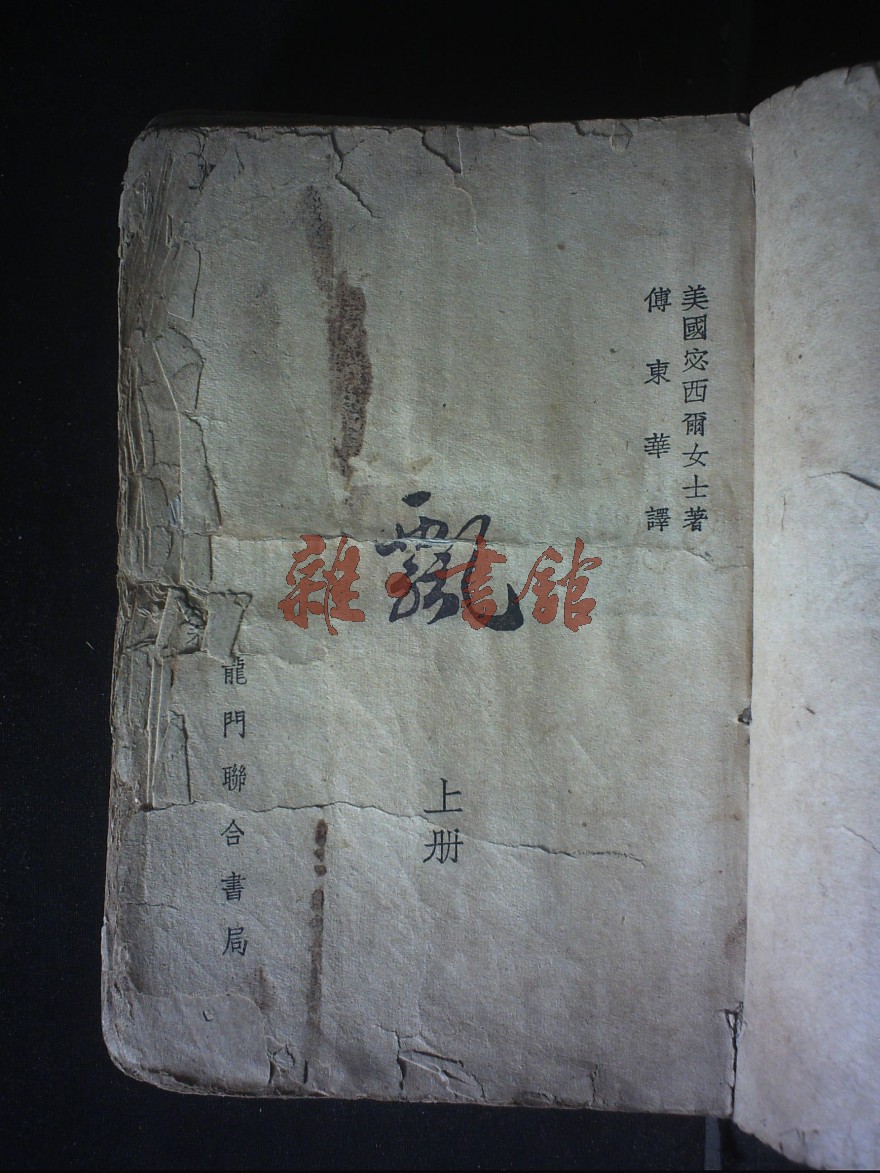 美國宓西爾女士著
傅東華譯
飄
上册
龍門聯合書局
雜·書館